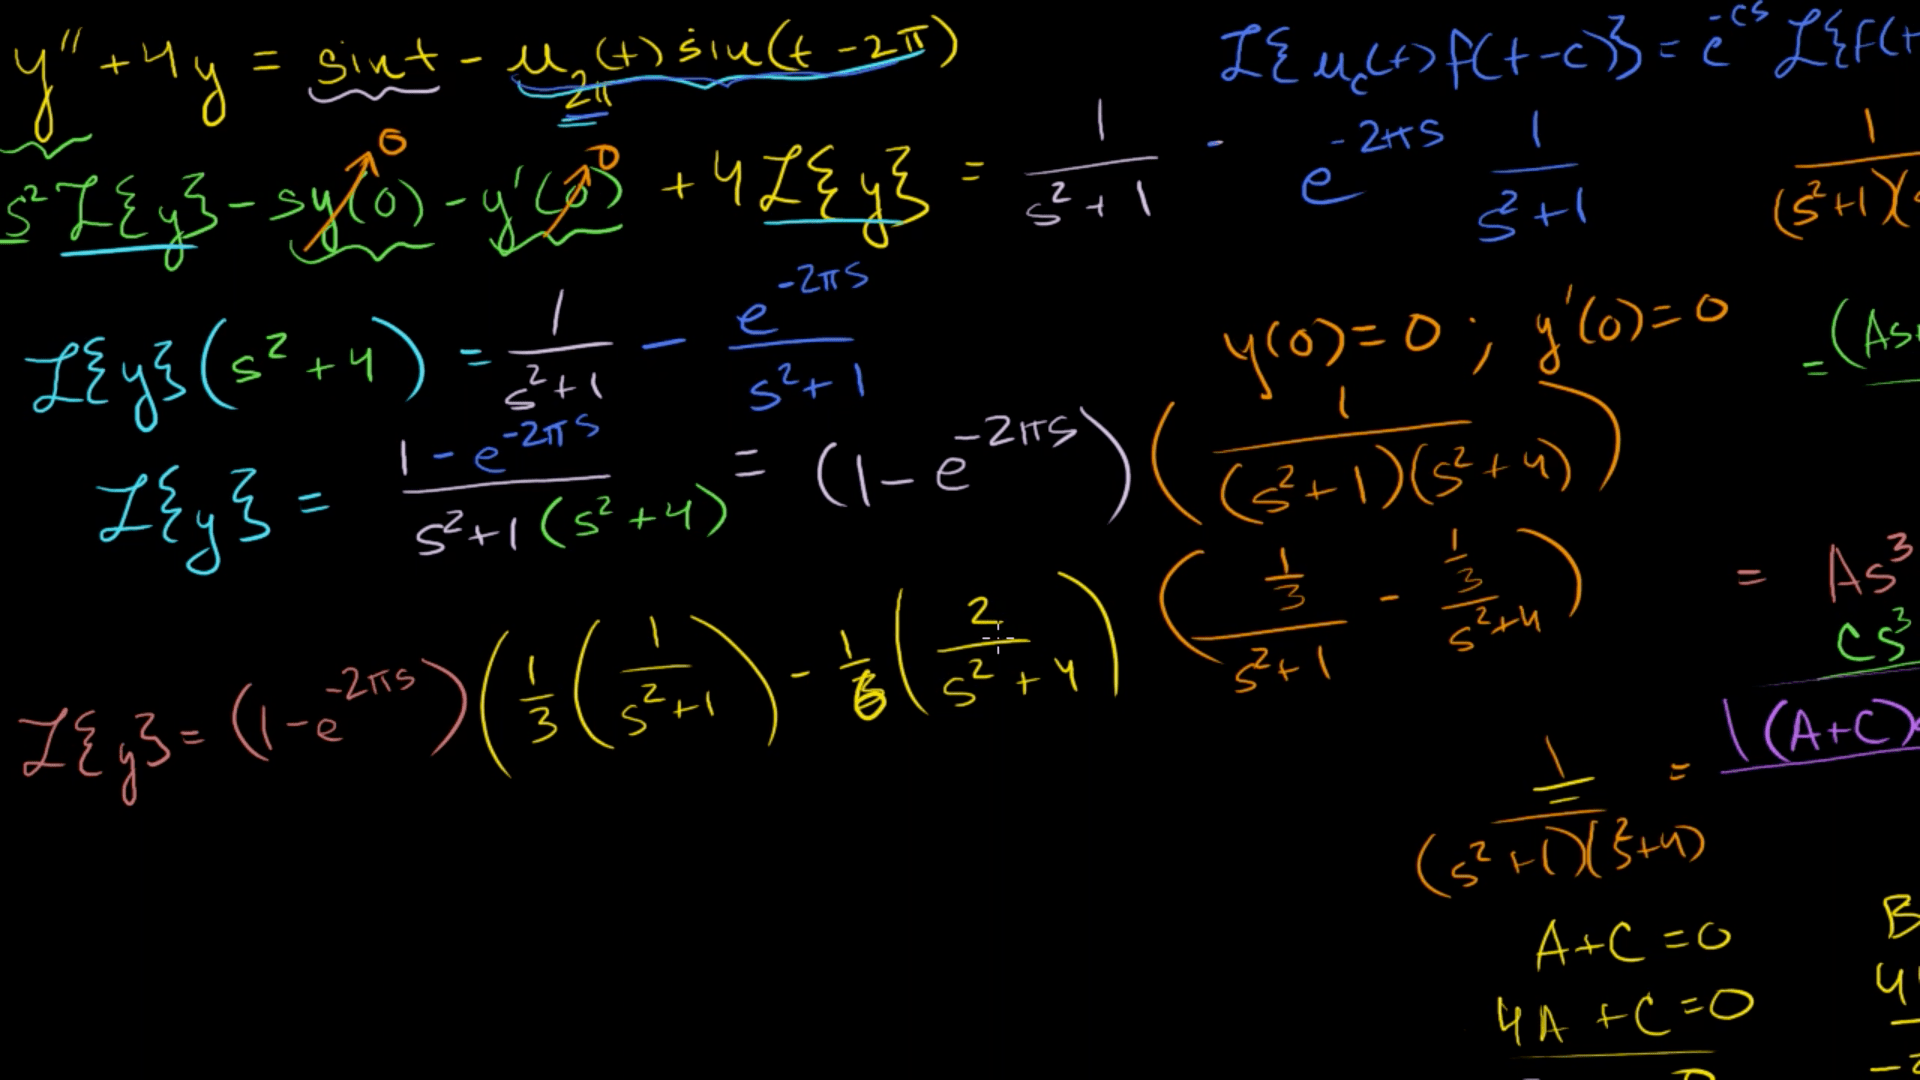 y″ + 4y = sint - u_2π(t) sin(t - 2π)
ℒ{u_c(t) f(t-c)} = e^-cs ℒ{f(t
s² ℒ{y} - sy(0) - y′(0) + 4ℒ{y} = 1/(s²+1) - e^-2πs 1/(s²+1)
0 0
1/(s²+1)(s
ℒ{y}(s² + 4) = 1/(s²+1) - e^-2πs/(s²+1)
y(0) = 0 ; y′(0) = 0
= (As
ℒ{y} = 1 - e^-2πs/s²+1(s²+4) = (1 - e^-2πs)(1/(s²+1)(s²+4))
((1/3)/(s²+1) - (1/3)/(s²+4))
= As³
Cs³
ℒ{y} = (1 - e^-2πs)(1/3(1/(s²+1)) - 1/6(2/(s²+4))
1/(s²+1)(s²+4) = (A+C)
A+C = 0
B
4A + C = 0
4